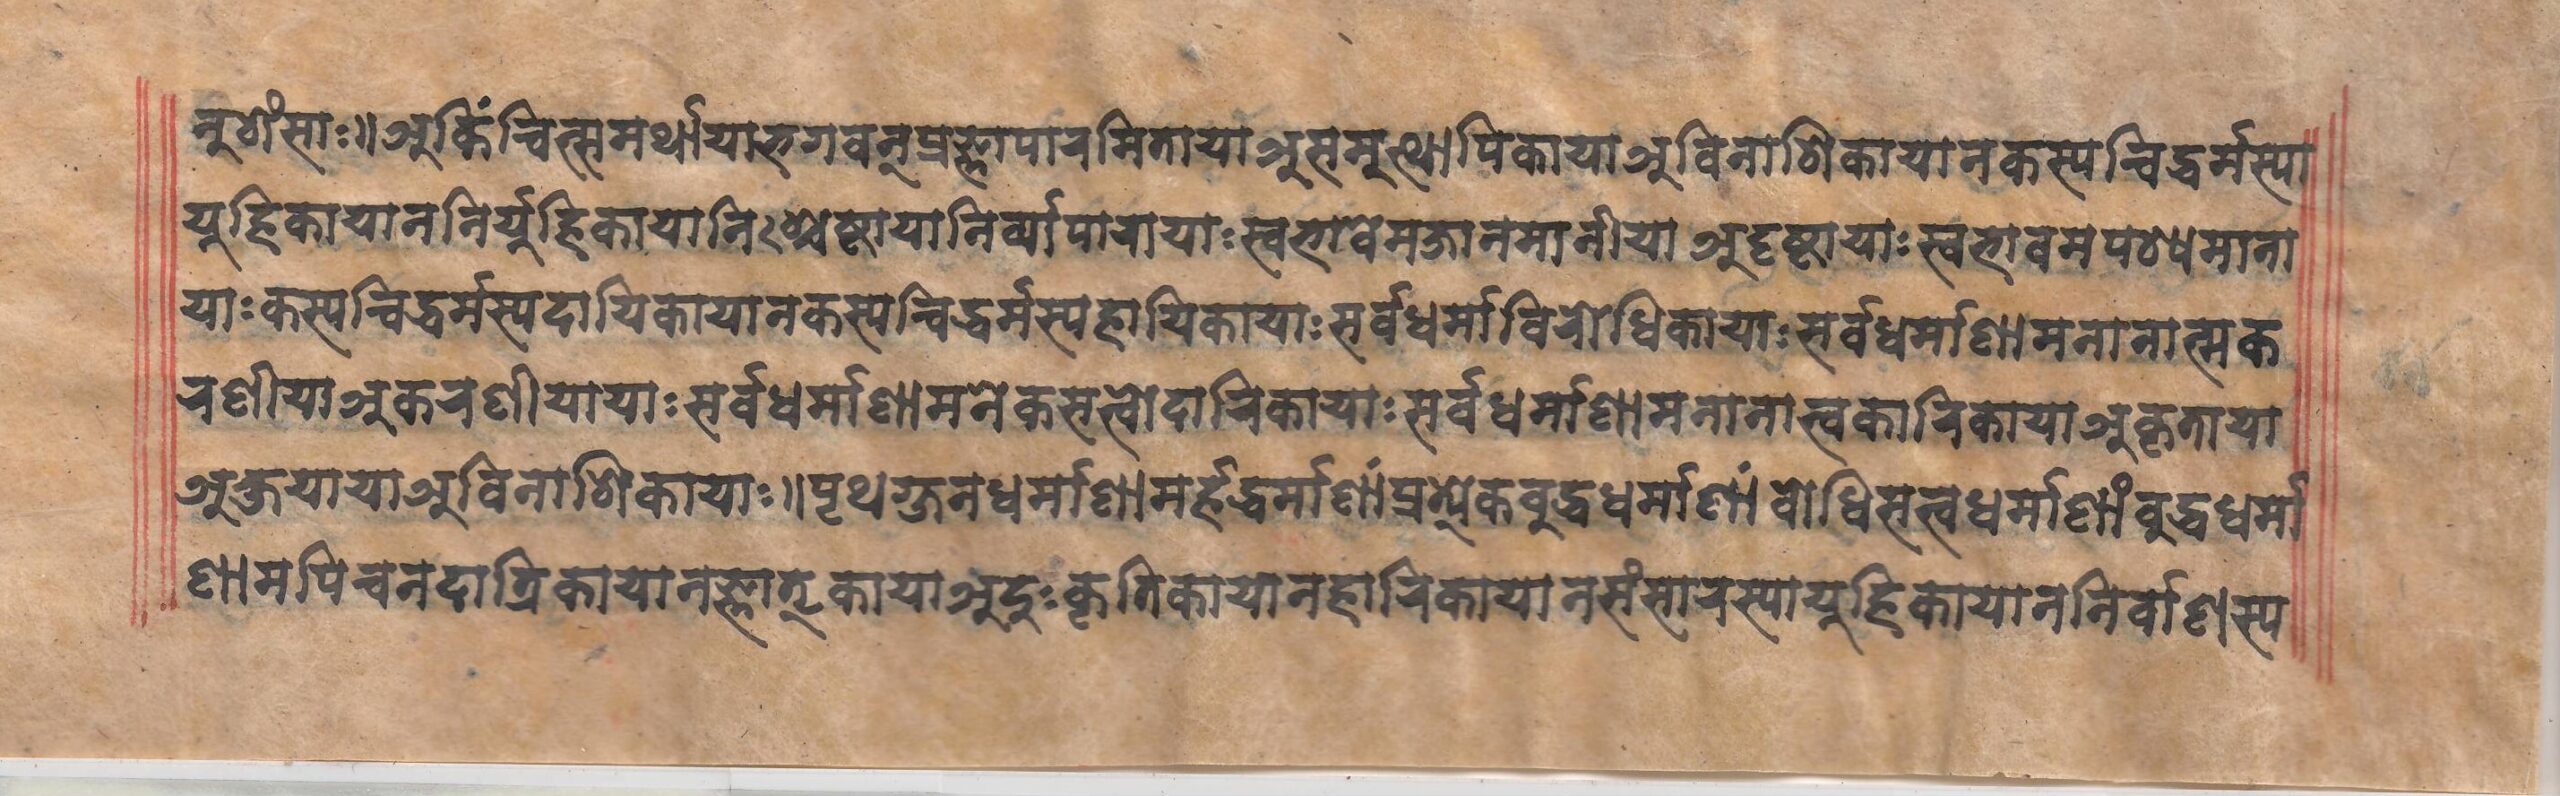 नुशंसाः॥अकिंचित्समर्थायाभगवन्प्रज्ञापारमितायाअसमुत्थापिकायाअविनाशिकायानकस्यचिद्धर्मस्या
युहिकायाननिर्युहिकायानिःश्चेष्टायानिर्व्यापारायाःस्वभावेमजानमानीयाअदृष्टायाःस्वभावमपश्यमाना
याःकस्यचिद्धर्मस्यदायिकायानकस्यचिद्धर्मस्यहायिकायाःसर्वधर्माविरोधिकायाःसर्वधर्माणामनानात्मक
रणीयाअकरणीयायाःसर्वधर्माणामनेकसत्त्वोदारिकायाःसर्वधर्माणामनानात्वकारिकायाअकृताया
अक्षयायाअविनाशिकायाः॥पृथग्जनधर्माणामर्हद्धर्माणांप्रत्येकबुद्धधर्माणां बोधिसत्वधर्माणांबुद्धधर्मा
णामपिचनदात्रिकायानज्ञातृकायाअदुःकृतिकायानहारिकायानसंसारस्यायुहिकायाननिर्वाणस्य